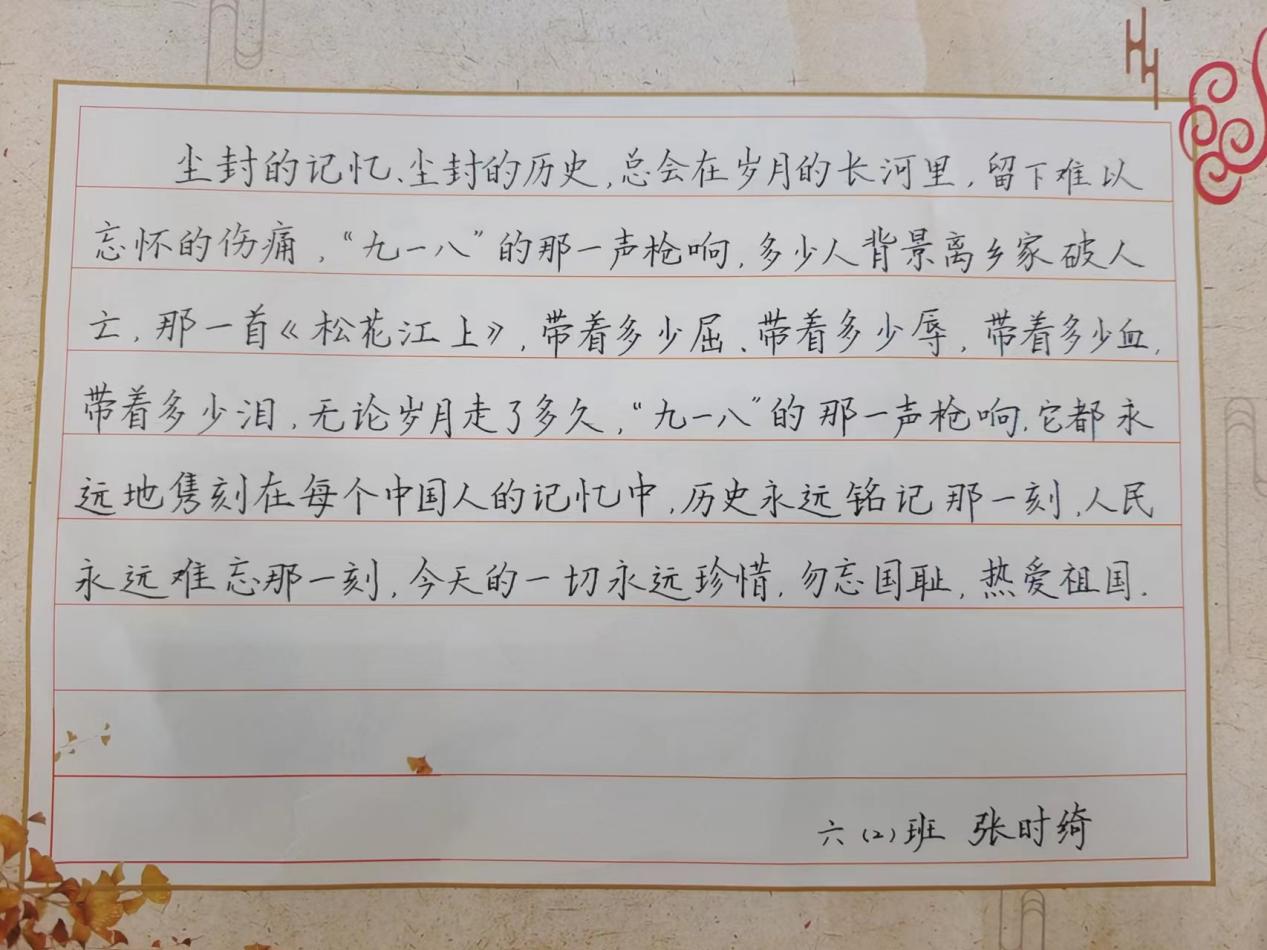 尘封的记忆、尘封的历史,总会在岁月的长河里,留下难以
忘怀的伤痛,“九一八”的那一声枪响,多少人背景离乡家破人
亡,那一首《松花江上》,带着多少屈、带着多少辱,带着多少血,
带着多少泪,无论岁月走了多久,“九一八”的那一声枪响,它都永
远地隽刻在每个中国人的记忆中,历史永远铭记那一刻,人民
永远难忘那一刻,今天的一切永远珍惜,勿忘国耻,热爱祖国.
六(2)班 张时绮